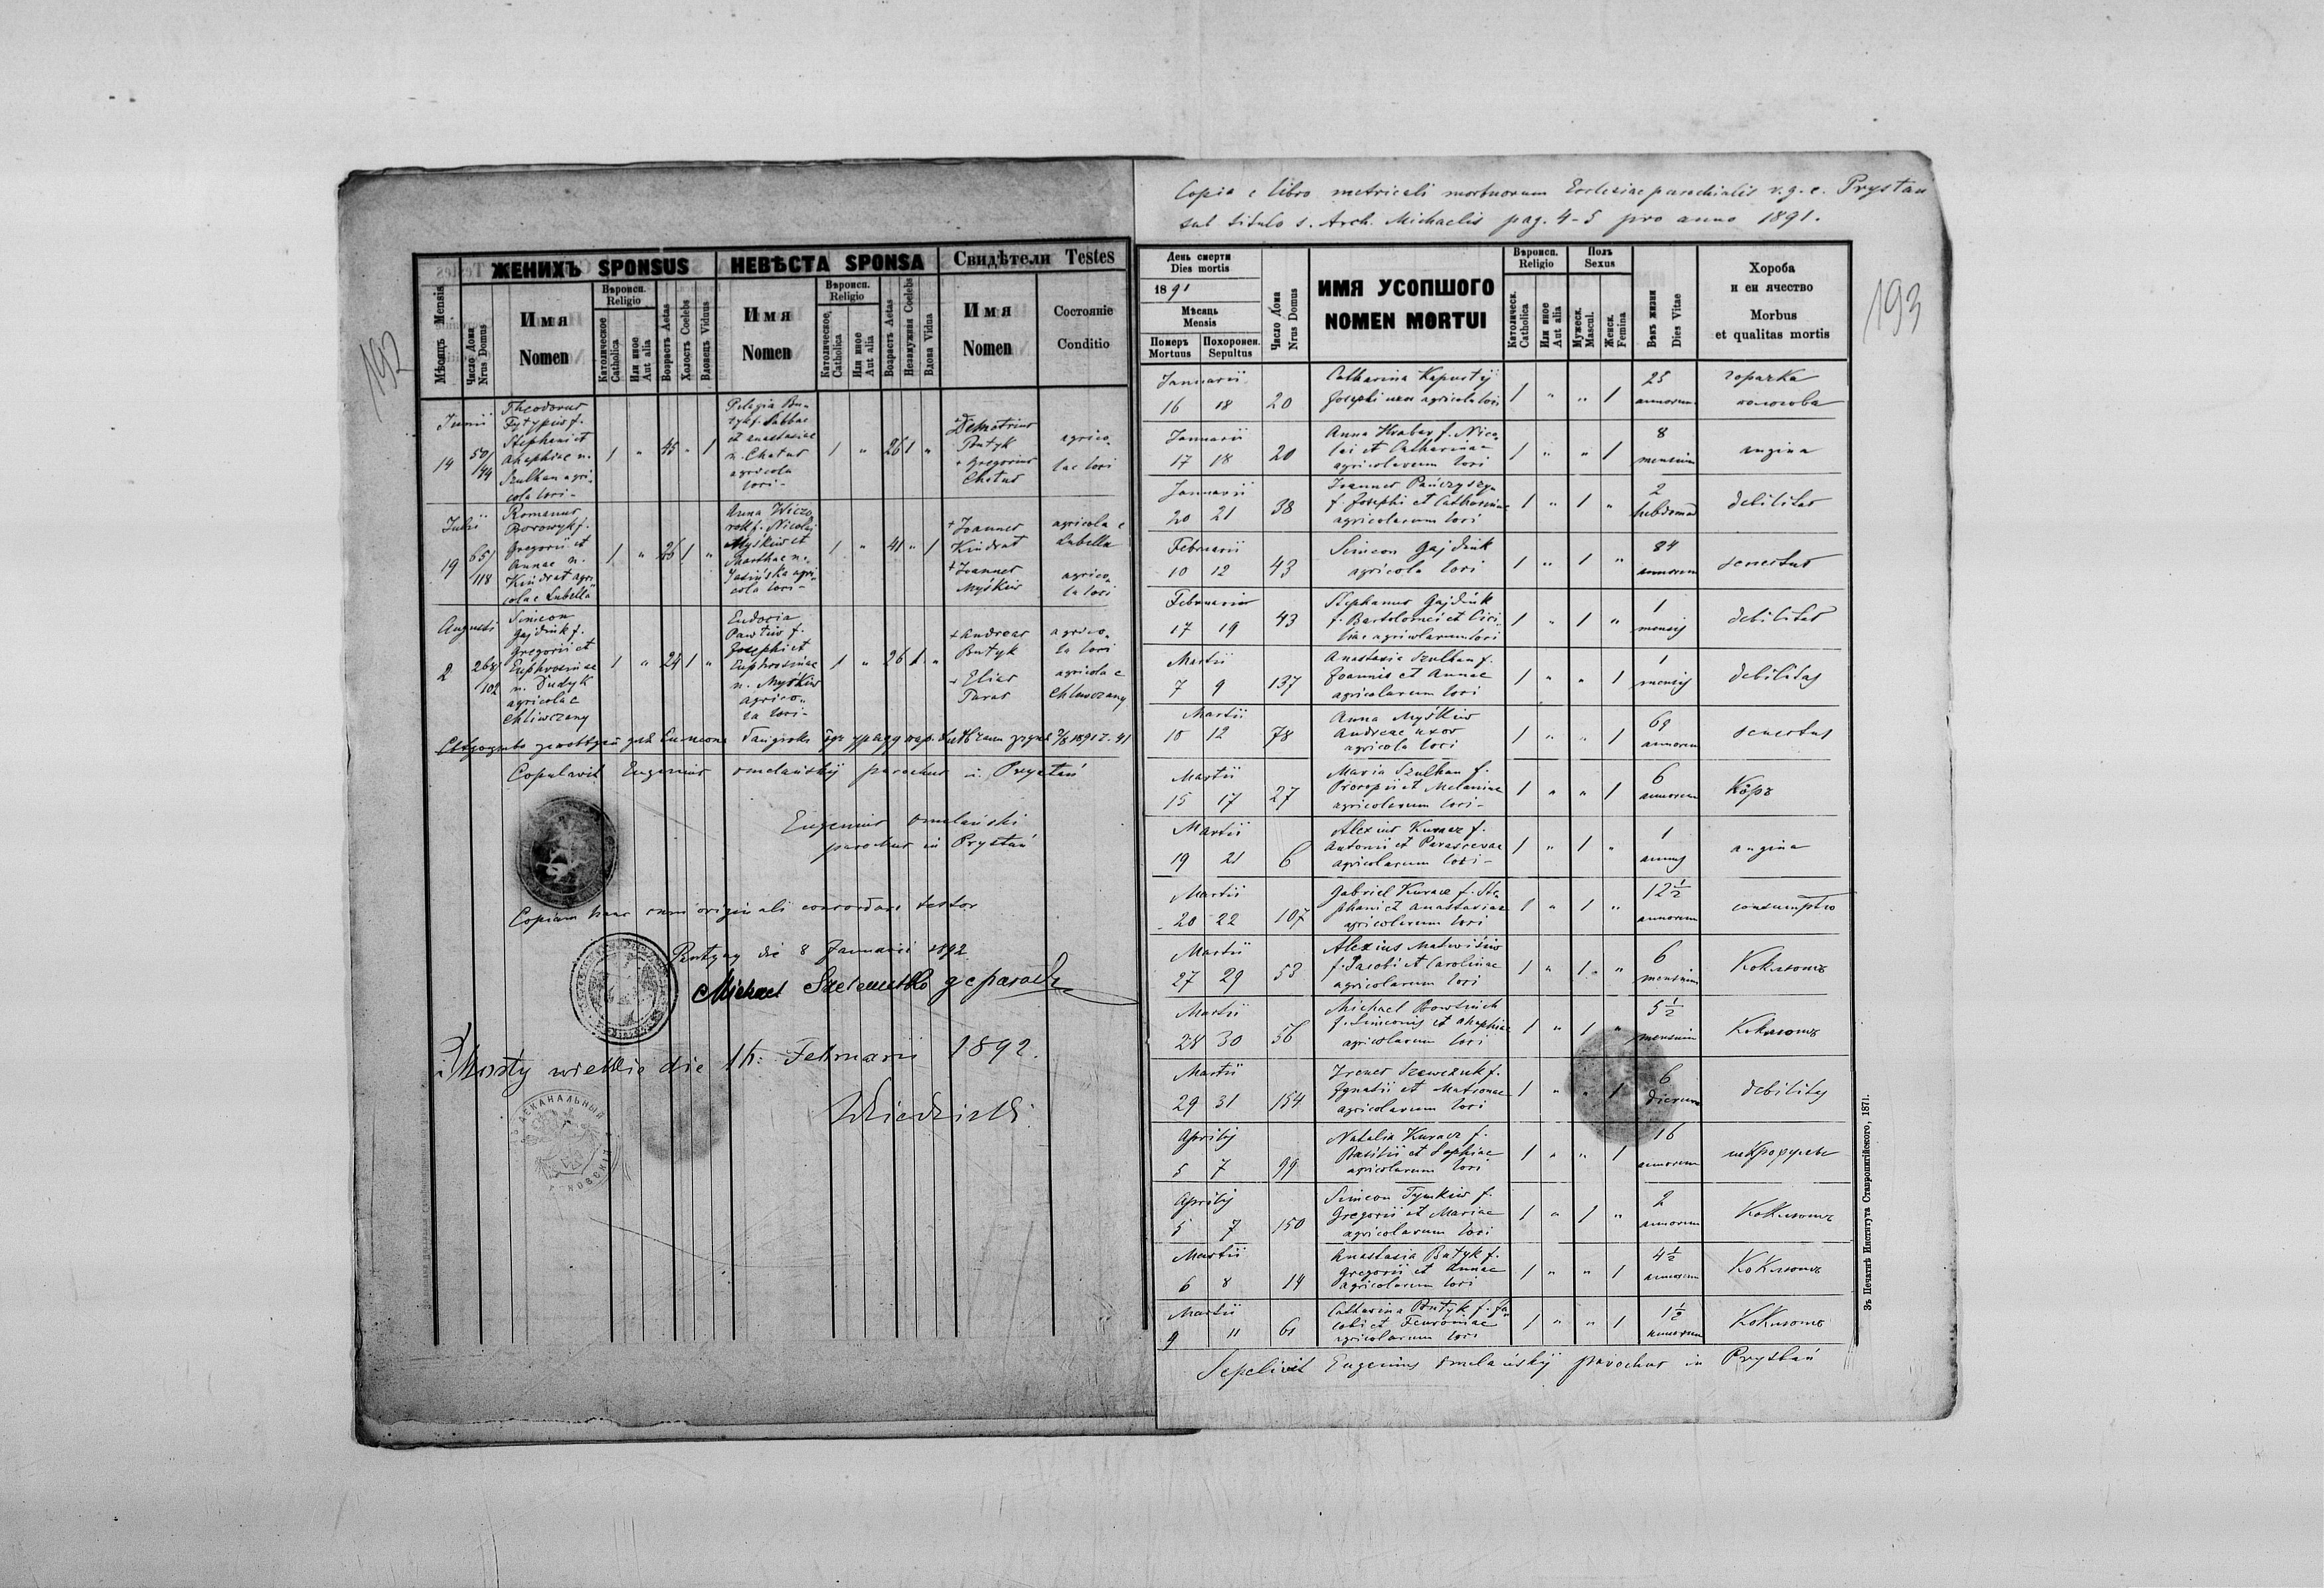 192
ЖЕНИХЪ SPONSUS
НЕВѢСТА SPONSA
Свидѣтели Testes
Мѣсяцъ Mensis
Число Дома Nrus Domus
Имя Nomen
Вѣроисп. Religio
Католическое Catholica
Или иное Aut alia
Возрастъ Aetas
Холостъ Coelebs
Вдовецъ Viduus
Имя Nomen
Вѣроисп. Religio
Католическое Catholica
Или иное Aut alia
Возрастъ Aetas
Незамужная Coelebs
Вдова Vidua
Имя Nomen
Состояніе Conditio
Junii
14
50/144
Theodorus
f.
Stephani et
Ahaphiae n.
Szulhan agri-
cola lori-
1 „ 45 „ 1
Pelagia Bu-
tyk f. Sabbae
et Anastasiae
n. Chatus
agricola
lori-
1 „ 26 1 „
+ Demetrius
Butyk
+ Gregorius
Chatus
agrico-
lae lori
Julii
19
65/118
Romanus
Borowyk f.
Gregorii et
Annae n.
Kindrat agri-
cola e Lubella
1 „ 25 1 „
Anna Wiczo-
rok f. Nicolai
Myśkiw et
Marthae n.
Jasińska agri-
cola lori-
1 „ 41 „ 1
+ Joannes
Kindrat
+ Joannes
Myśkiw
agricola e
Lubella
agrico-
la lori
Augusti
2
268/102
Simeon
Gajdiuk f.
Gregorii et
Euphrosinae
n. Dudyk
agricola e
Chliwczany
1 „ 24 1 „
Eudocia
Pawliw f.
Josephi et
Euphrosinae
n. Myśkiw
agrico-
la lori-
1 „ 26 1 „
+ Andreas
Butyk
+ Elias
Taras
agrico-
la lori
agricola e
Chliwczany
Copulavit Eugenius Omelański parochus in Prystań
Eugenius Omelański
parochus in Prystań
Copiam hanc cum originali concordare testor
Butyny die 8 Januarii 1892
Michael
Mosty wielkie die 1 Februarii 1892.
193
Copia e libro metricali mortuorum Ecclesiae parochialis r. g. c. Prystań
sub titulo s. Arch. Michaelis pag. 4-5 pro anno 1891.
День смерти Dies mortis
1891
Мѣсяць Mensis
Померъ Mortuus
Похоронен. Sepultus
Число Дома Nrus Domus
ИМЯ УСОПШОГО
NOMEN MORTUI
Вѣроисп. Religio
Католическ. Catholica
Или иное Aut alia
Полъ Sexus
Мужеск. Mascul.
Женск. Femina
Вѣкъ жизни Dies Vitae
Хороба
и еи ячество
Morbus
et qualitas mortis
Januarii
16 18 20
Catharina Kapustij
Josephi uxor agricola lori
1 „ „ 1
25 annorum
горячка
Januarii
17 18 20
Anna Hrabar f. Nico-
lai et Catharinae
agricolarum lori
1 „ „ 1
8 mensium
angina
Januarii
20 21 38
Joannes Pańczyszyn
f. Josephi et Catharinae
agricolarum lori
1 „ 1 „
2 hebdomad
debilitas
Februarii
10 12 43
Simeon Gajdiuk
agricola lori
1 „ 1 „
84 annorum
senectus
Februarii
17 19 43
Stephanus Gajdiuk
f. Bartolomei et Cici-
liae agricolarum lori
1 „ 1 „
1 mensis
debilitas
Martii
7 9 137
Anastasia Szulhan f.
Joannis et Annae
agricolarum lori
1 „ „ 1
1 mensis
debilitas
Martii
10 12 78
Anna Myśkiw
Andreae uxor
agricola lori
1 „ „ 1
69 annorum
senectus
Martii
15 17 27
Maria Szulhan f.
Procopii et Melaniae
agricolarum lori-
1 „ „ 1
6 annorum
Кôръ
Martii
19 21 6
Alexius Kuracz f.
Antonii et Parascevae
agricolarum lori-
1 „ 1 „
1 annus
angina
Martii
20 22 107
Gabriel Kuracz f. Ste-
phani et Anastasiae
agricolarum lori
1 „ 1 „
12 1/2 annorum
consumptio
Martii
27 29 53
Alexius Matwiśiw
f. Jacobi et Carolinae
agricolarum lori
1 „ 1 „
6 mensium
Коклюшъ
Martii
28 30 56
Michael
f. Simeonis et Ahaphiae
agricolarum lori
1 „ 1 „
5 1/2 mensium
Коклюшъ
Martii
29 31 154
Irenes Szewczuk f.
Ignatii et Matronae
agricolarum lori
1 „ „ 1
6 dierum
debilitas
Aprilis
5 7 99
Natalia Kuracz f.
Basilii et Sophiae
agricolarum lori
1 „ „ 1
16 annorum
Aprilis
5 7 150
Simeon Tymkiw f.
Gregorii et Mariae
agricolarum lori
1 „ 1 „
2 annorum
Коклюшъ
Martii
6 8 14
Anastasia Butyk f.
Gregorii et Annae
agricolarum lori
1 „ „ 1
4 1/2 annorum
Коклюшъ
Martii
9 11 61
Catharina Butyk f. Ja-
cobi et Feuroniae
agricolarum lori
1 „ „ 1
1 1/2 annorum
Коклюшъ
Sepelivit Eugenius Omelańskij parochus in Prystań
Зъ Печатнѣ Института Ставропигійского, 1871.